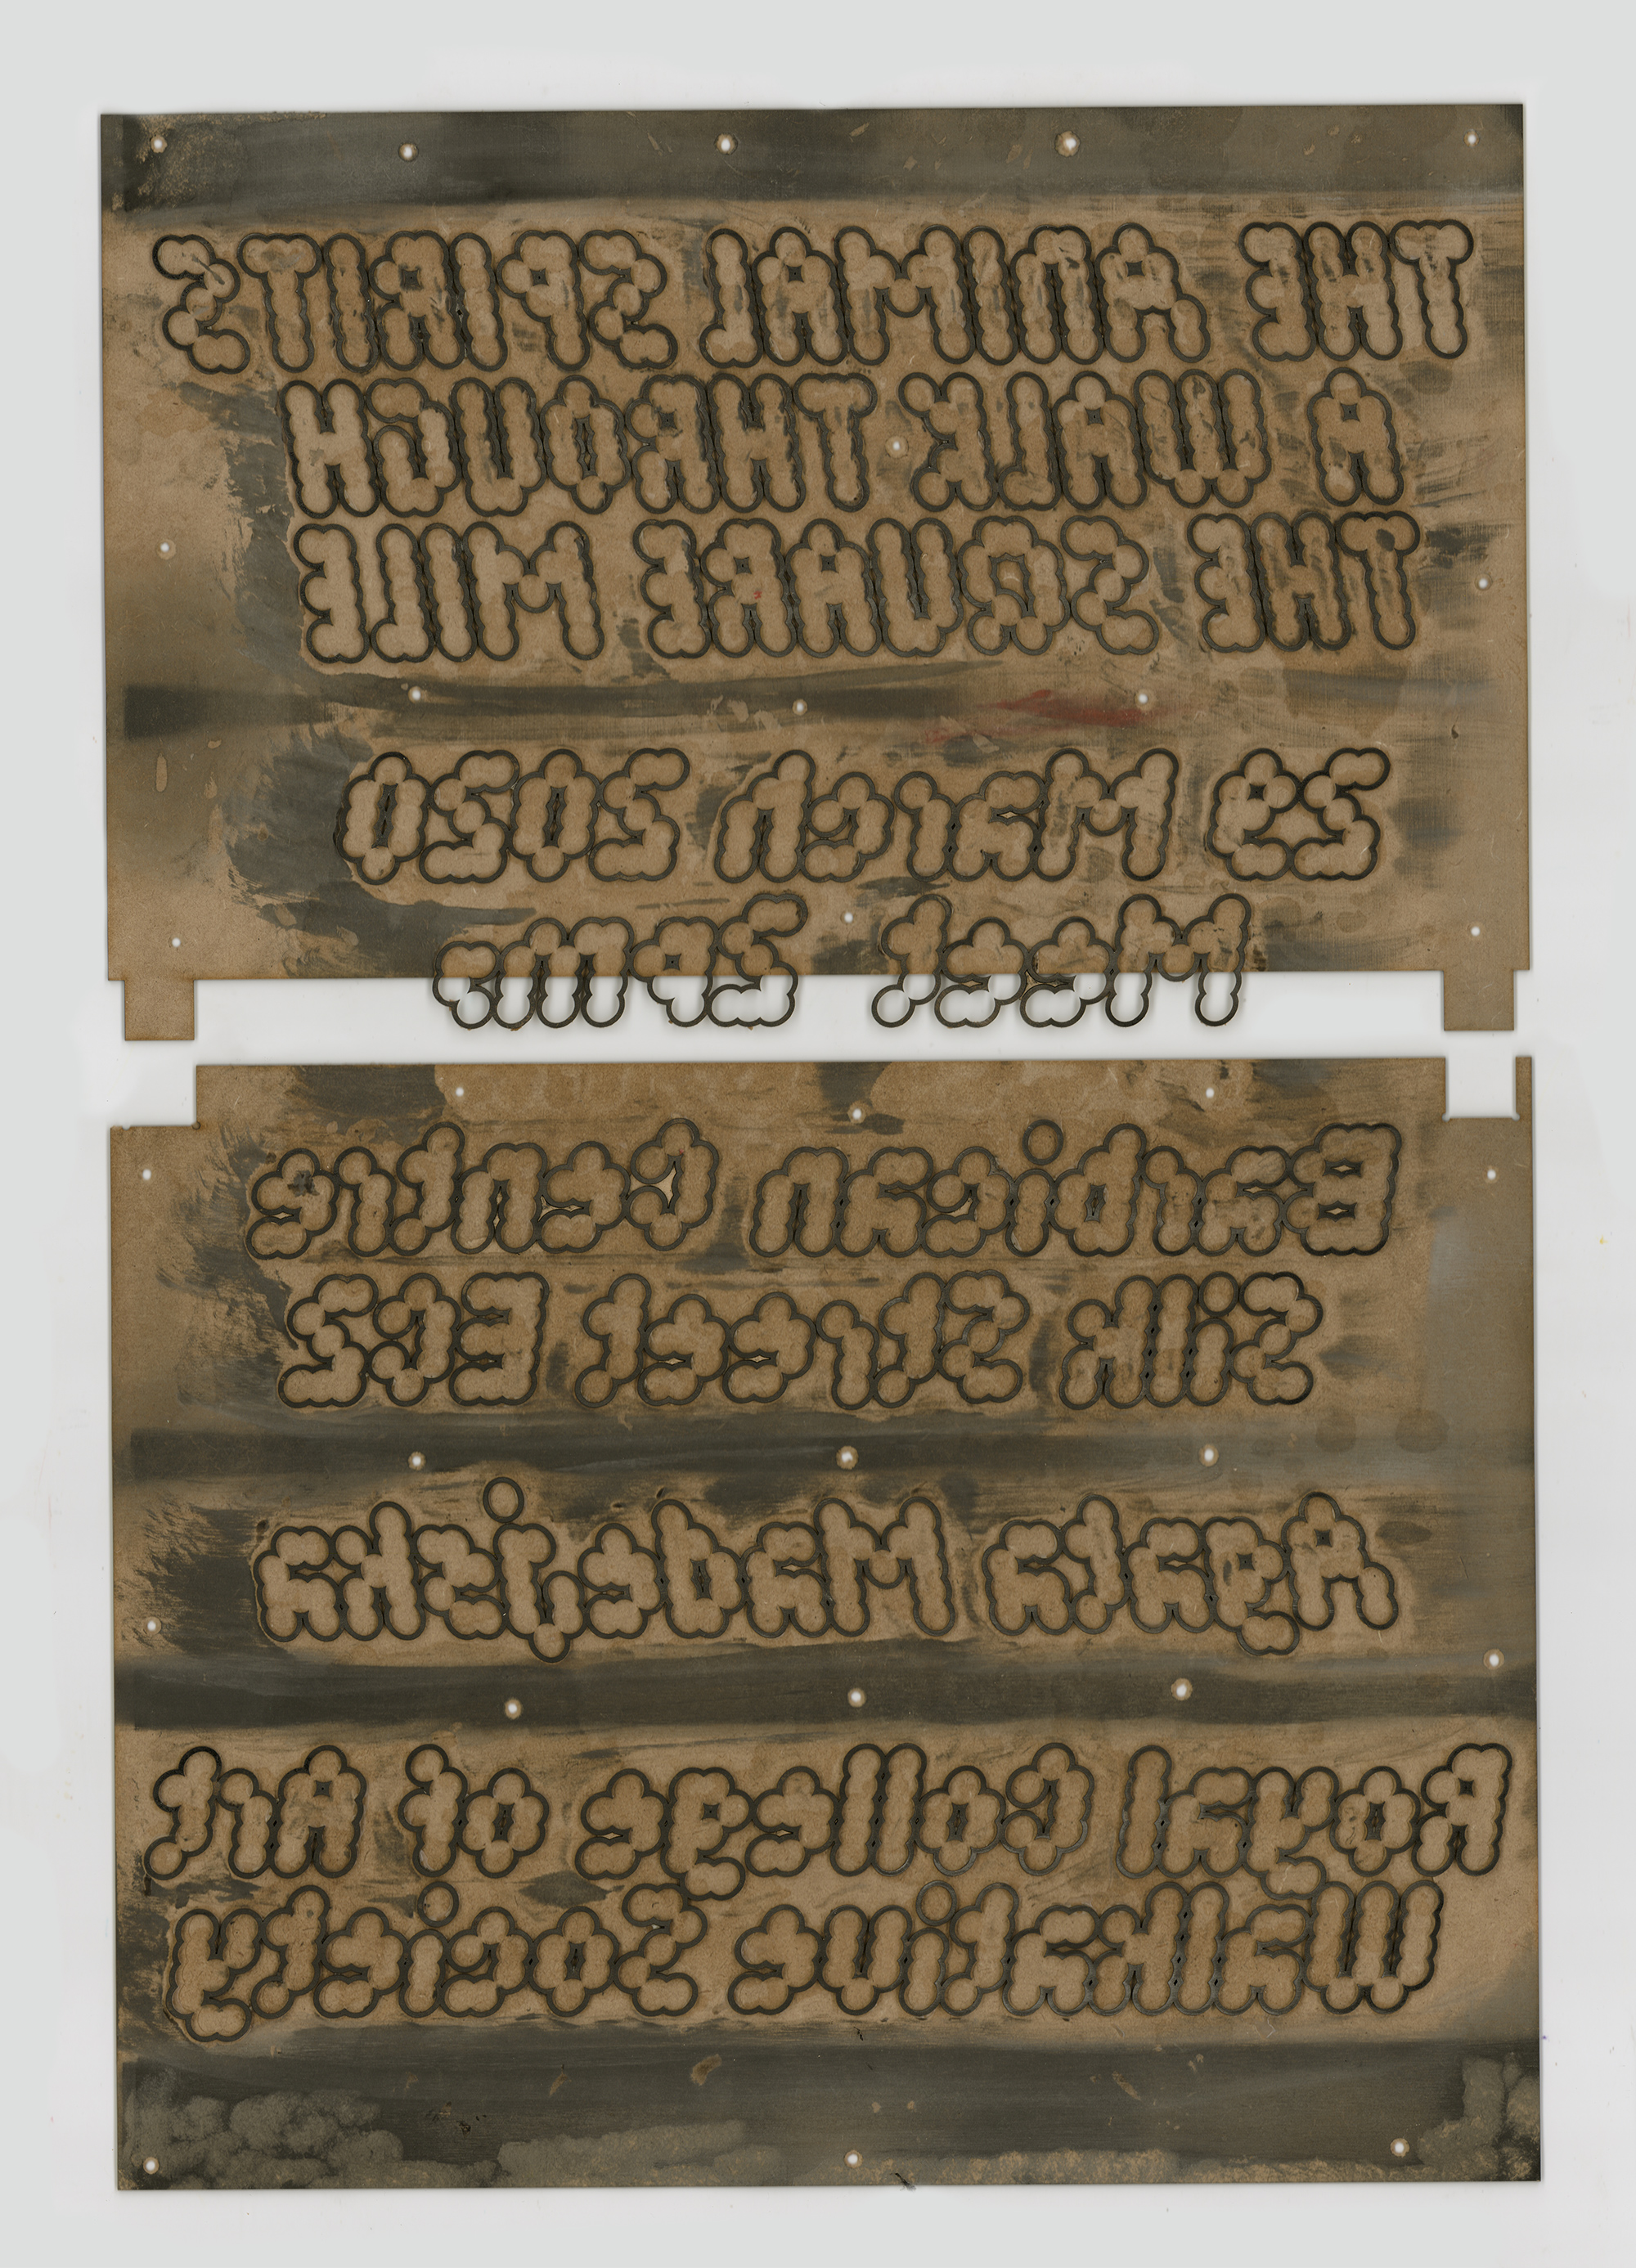 THE ANIMAL SPIRITS
A WALK THROUGH
THE SQUARE MILE
29 March 2020
Meet 2pm
Barbican Centre
Silk Street EC2
Agata Madejska
Royal College of Art
Walkative Society